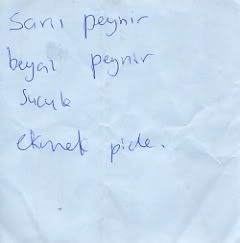 sarı peynir
beyaz peynir
sucuk
ekmek pide.